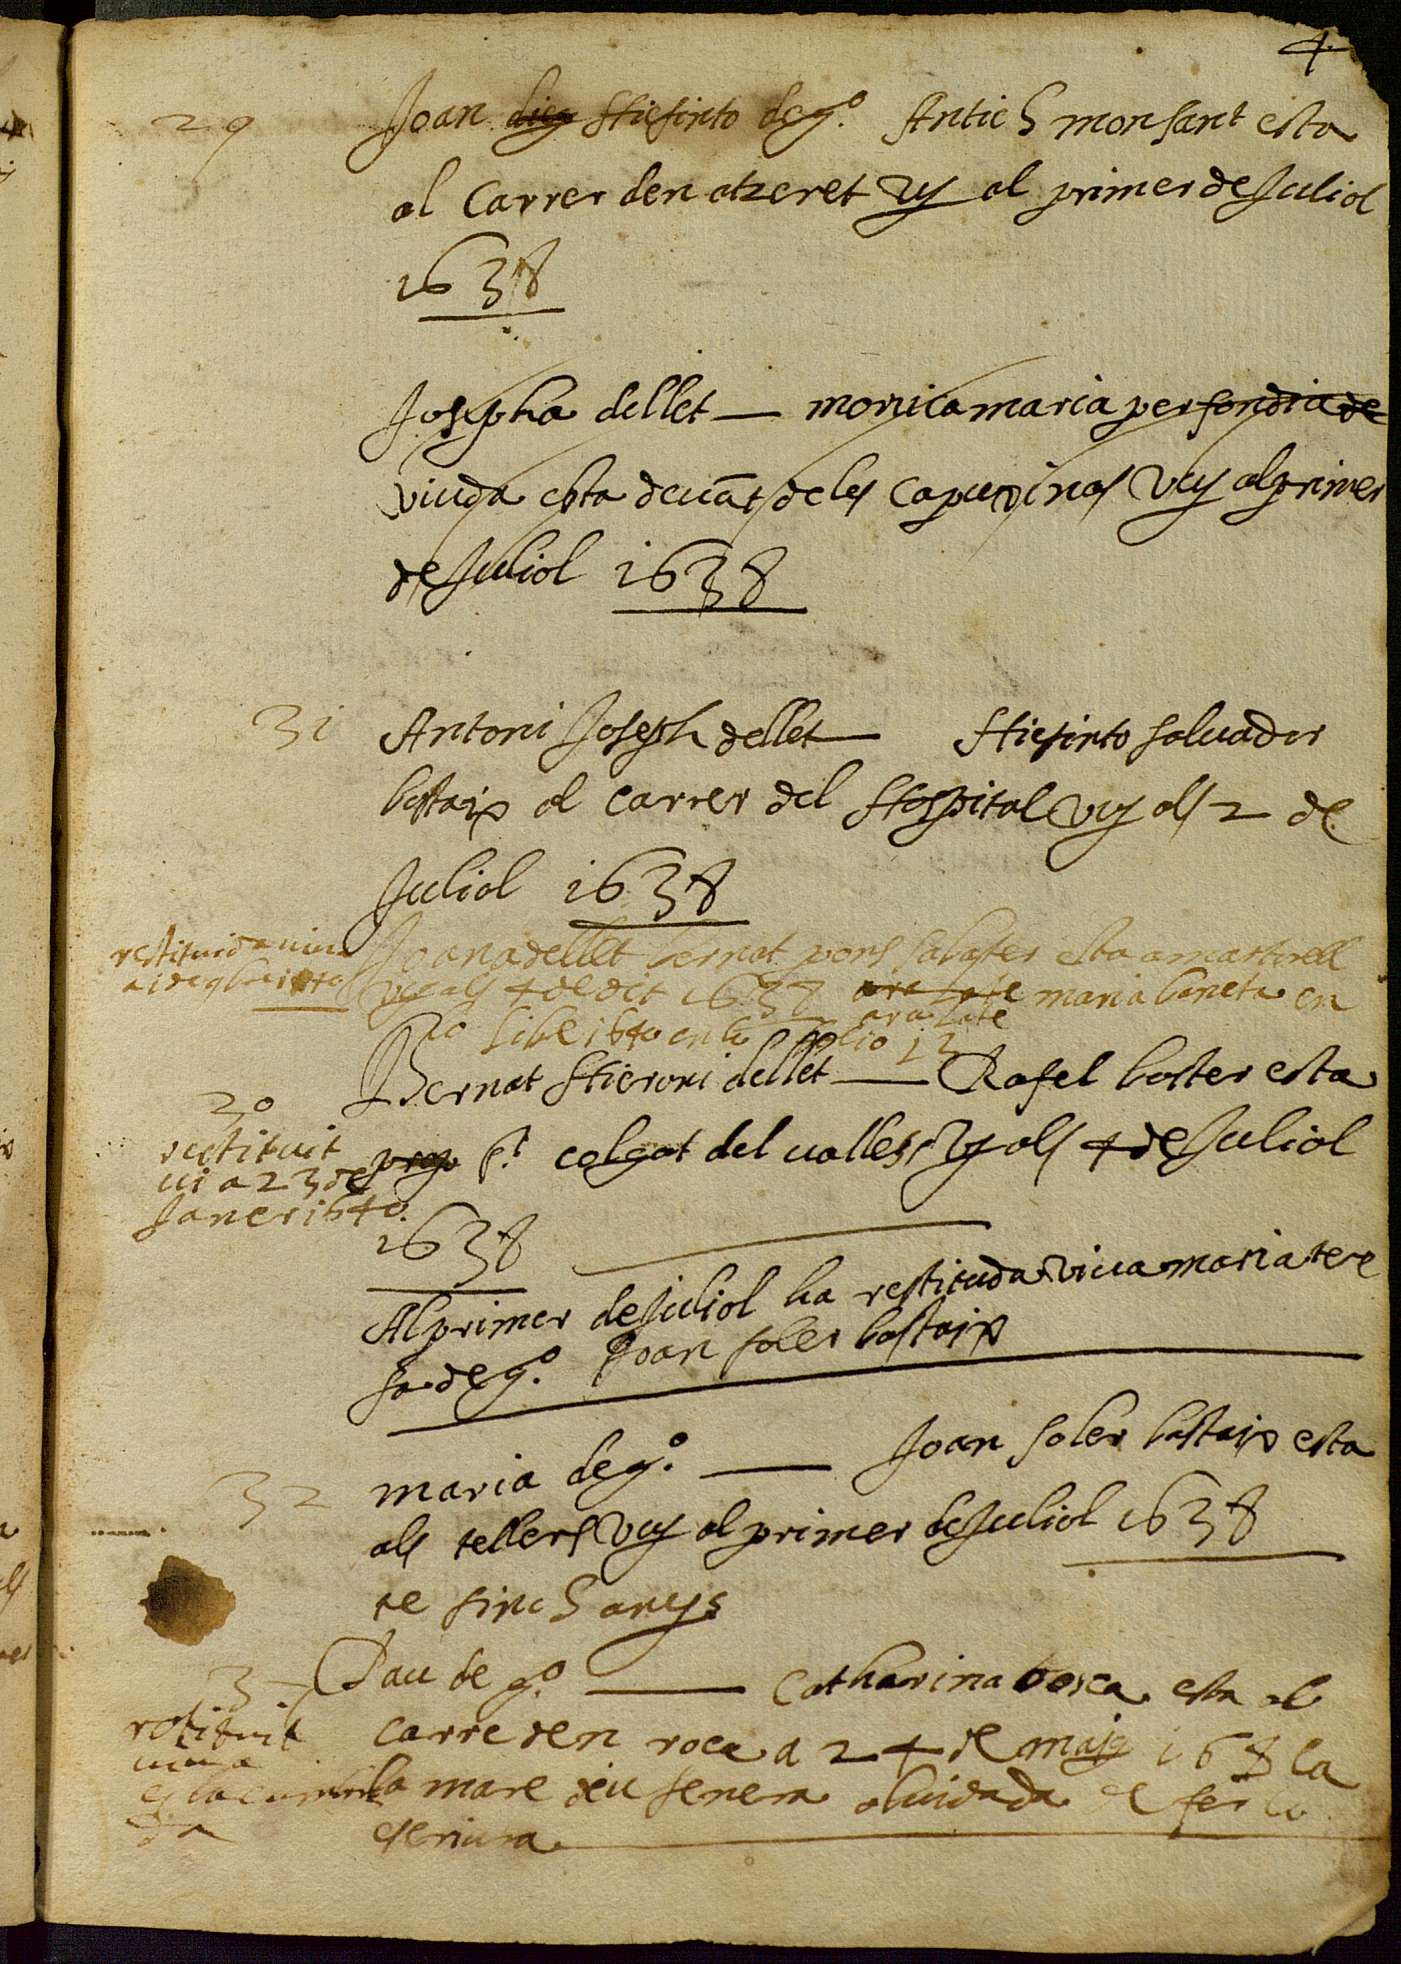 4
29 Joan diey Hiesinto deg.º Antich monsant esta
al Carrer den atzeret Vy al primer de Juliol
1638
Josepha dellet — monica maria perfondia de
viuda esta devāt de les capuxinas Vuy al primer
de Juliol 1638
31 Antoni Joseph dellet — Hiesinto salvador
bastaix al carrer del Hospital vuy als 2 de
Juliol 1638
restituida viva
Joana dellet bernat pons sabater esta a martorell
vuy als 4 de dit 1638 ara la te maria baneta en
ara la te
lo libre 1640 en lo folio 12
Bernat Hieroni dellet — Rafel boster esta
30
restituit
vi a 23 de
Janer 1640.
prop St. colgat del valles Vy als 4 de Juliol
1638
Al primer de Juliol ha restituda viva maria tere
sa deg.º Joan soler bastaix
32 maria deg.º — Joan soler bastaix esta
als tellers Vuy al primer de Juliol 1638
te sinch anys
3
Pau de g.º — Catharina bosca esta al
restituit
carre den roca a 24 de maig 1638 la
la mare deu senera olvidada de fer la
escriura